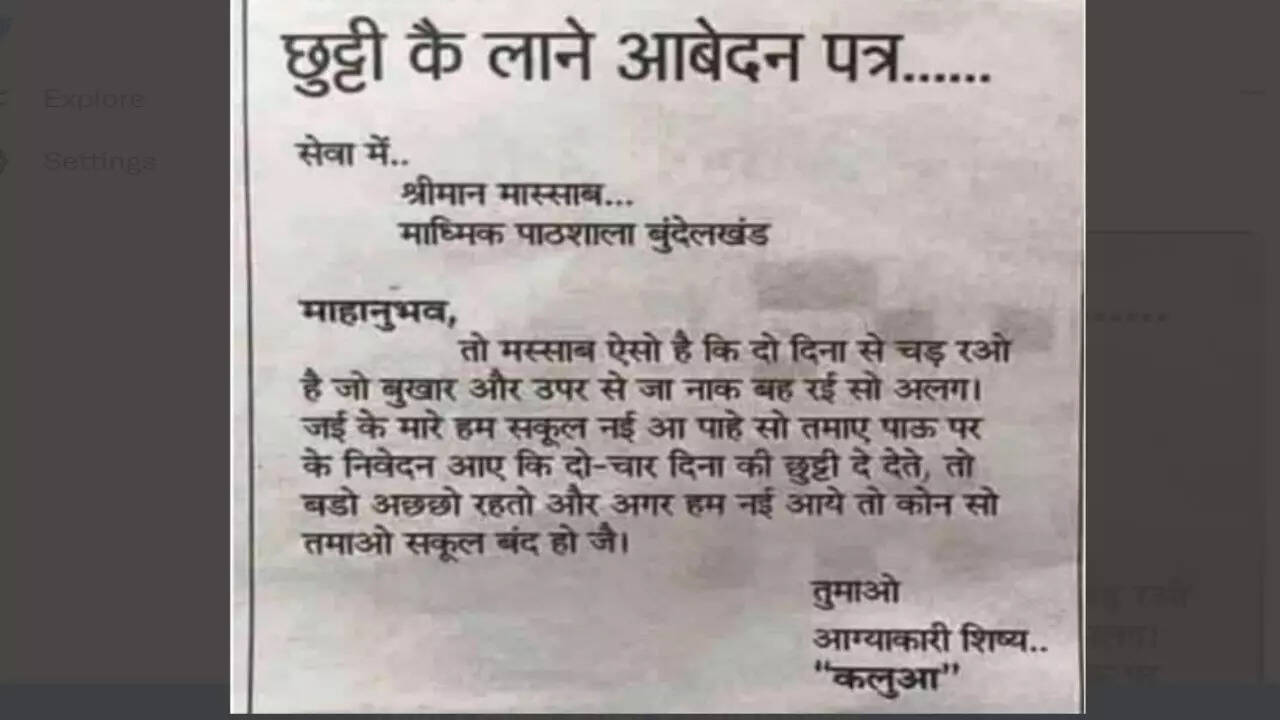 छुट्टी कै लाने आबेदन पत्र......
सेवा में..
श्रीमान मास्साब...
माध्मिक पाठशाला बुंदेलखंड
माहानुभव,
तो मस्साब ऐसो है कि दो दिना से चड़ रओ
है जो बुखार और उपर से जा नाक बह रई सो अलग।
जई के मारे हम सकूल नई आ पाहे सो तमाए पाऊ पर
के निवेदन आए कि दो-चार दिना की छुट्टी दे देते, तो
बडो अछछो रहतो और अगर हम नई आये तो कोन सो
तमाओ सकूल बंद हो जै।
तुमाओ
आग्याकारी शिष्य..
“कलुआ”
Explore
Settings